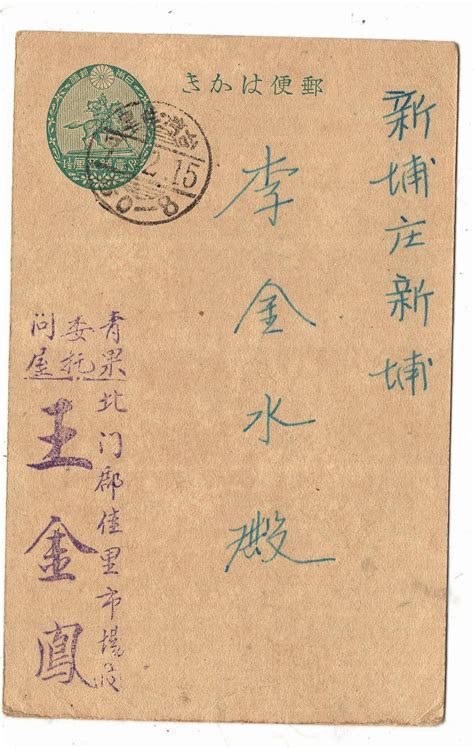 郵便はかき
新埔庄新埔
李金水殿
青果
委托
问屋
北门郡佳里市場
王金鳳
2.15
0-8